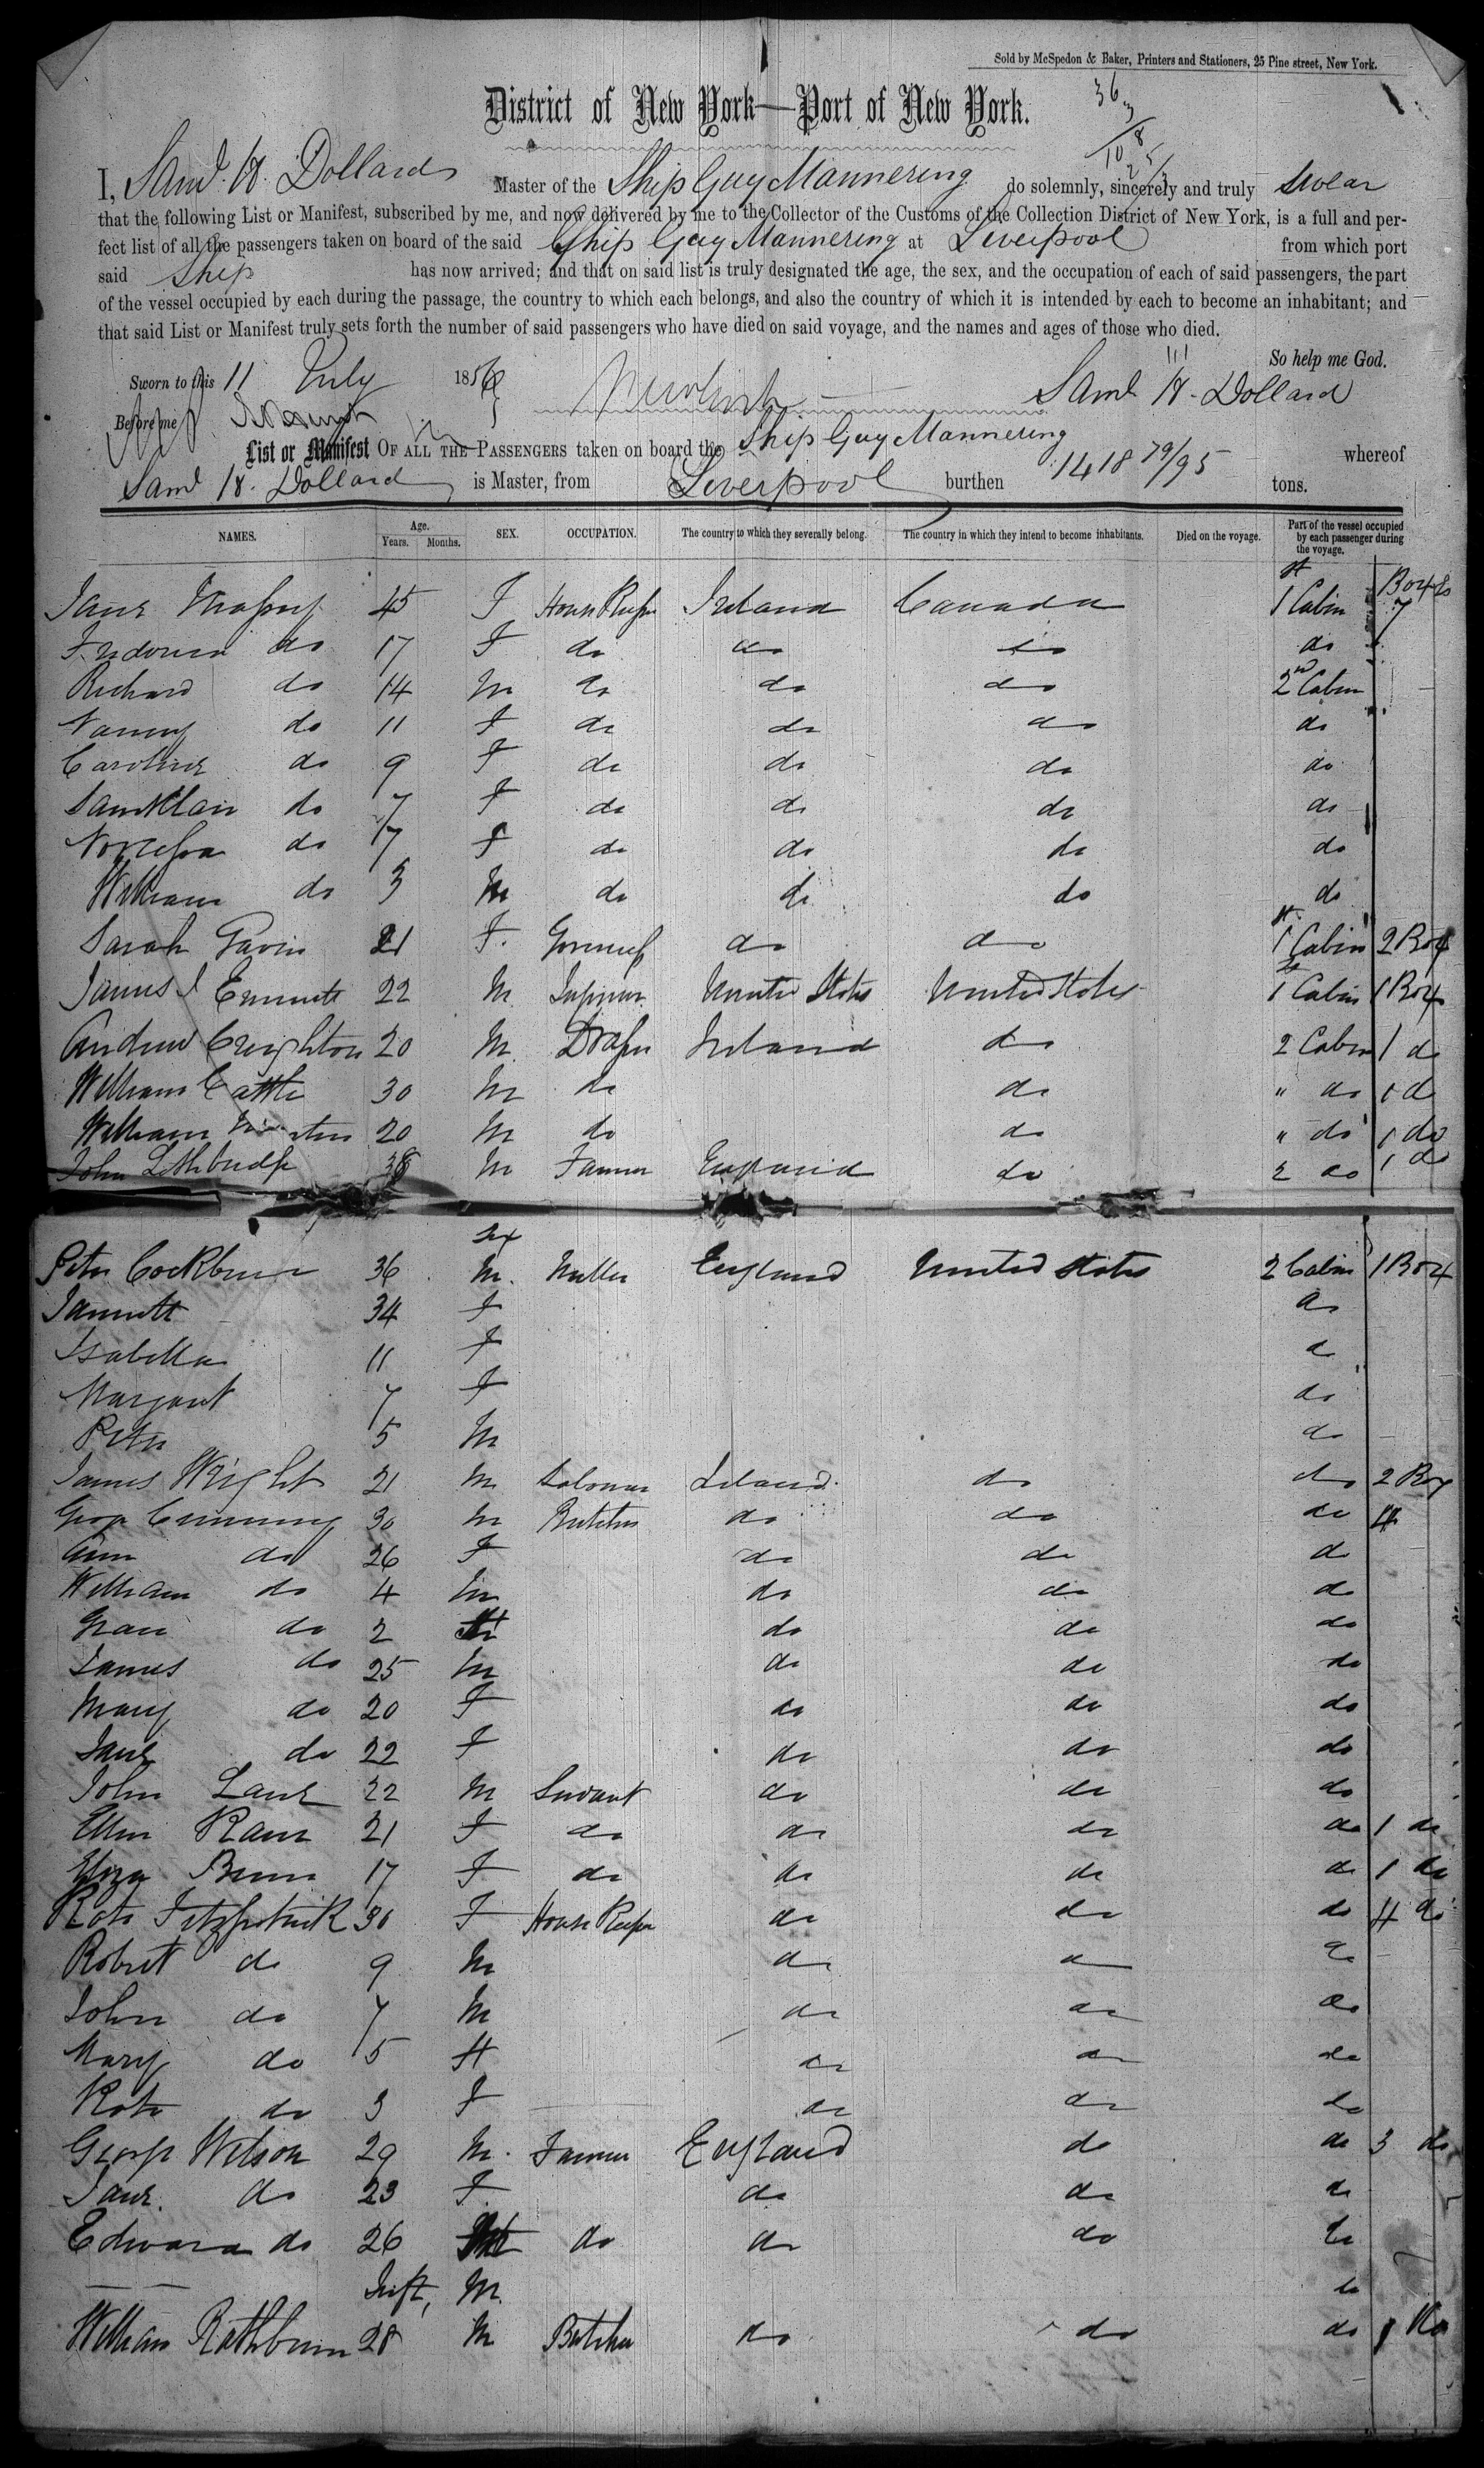 Sold by McSpedon & Baker, Printers and Stationers, 25 Pine street, New York.
36
District of New York—Port of New York.
I, Saml. H. Dollard Master of the Ship Guy Mannering do solemnly, sincerely and truly swear
that the following List or Manifest, subscribed by me, and now delivered by me to the Collector of the Customs of the Collection District of New York, is a full and per-
fect list of all the passengers taken on board of the said Ship Guy Mannering at Liverpool from which port
said Ship has now arrived; and that on said list is truly designated the age, the sex, and the occupation of each of said passengers, the part
of the vessel occupied by each during the passage, the country to which each belongs, and also the country of which it is intended by each to become an inhabitant; and
that said List or Manifest truly sets forth the number of said passengers who have died on said voyage, and the names and ages of those who died.
So help me God.
Sworn to this 11 July 1856 Saml H. Dollard
Before me
List or Manifest OF ALL THE PASSENGERS taken on board the Ship Guy Mannering whereof
Saml H. Dollard is Master, from Liverpool burthen 1418 79/95 tons.
NAMES. Age. Years. Months. SEX. OCCUPATION. The country to which they severally belong. The country in which they intend to become inhabitants. Died on the voyage. Part of the vessel occupied by each passenger during the voyage.
Jane 45 F House Keeper Ireland Canada 1st Cabin Boxes 7
do 17 F do do do do
Richard do 14 M do do do 2nd Cabin
Nancy do 11 F do do do do
Caroline do 9 F do do do do
do 7 F do do do do
do 7 F do do do do
William do 3 M do do do do
Sarah Gavin 21 F. Governess do do 1st Cabin 2 Box
James J Emmett 22 M United States United States 1st Cabin 1 Box
Andrew Creighton 20 M Draper Ireland do 2 Cabin 1 do
William Cattle 30 M do do " do 1 do
William 20 M do do " do 1 do
John Lethbridge 38 M Farmer England do 2 do 1 do
Sex
Peter Cockburn 36 M. Miller England United States 2 Cabin 1 Box
Jannett 34 F do
Isabella 11 F do
Margaret 7 F do
Peter 5 M do
James Wright 21 M Ireland do do 2 Box
George Cumming 30 M Butcher do do do 4
Ann do 26 F do do do
William do 4 M do do do
do 2 do do do
James do 25 M do do do
Mary do 20 F do do do
Jane do 22 F do do do
John Lane 22 M Servant do do do
Ellen Kane 21 F do do do do 1 do
Eliza 17 F do do do do 1 do
Kate Fitzpatrick 30 F House Keeper do do do 4 do
Robert do 9 M do do do
John do 7 M do do do
Mary do 5 F do do do
Kate do 3 F do do do
George Wilson 29 M. Farmer England do do 3 do
Jane do 23 F do do do
Edward do 26 M do do do do
— — Inft, M. do
William Rathburn 28 M Butcher do do do 1 do